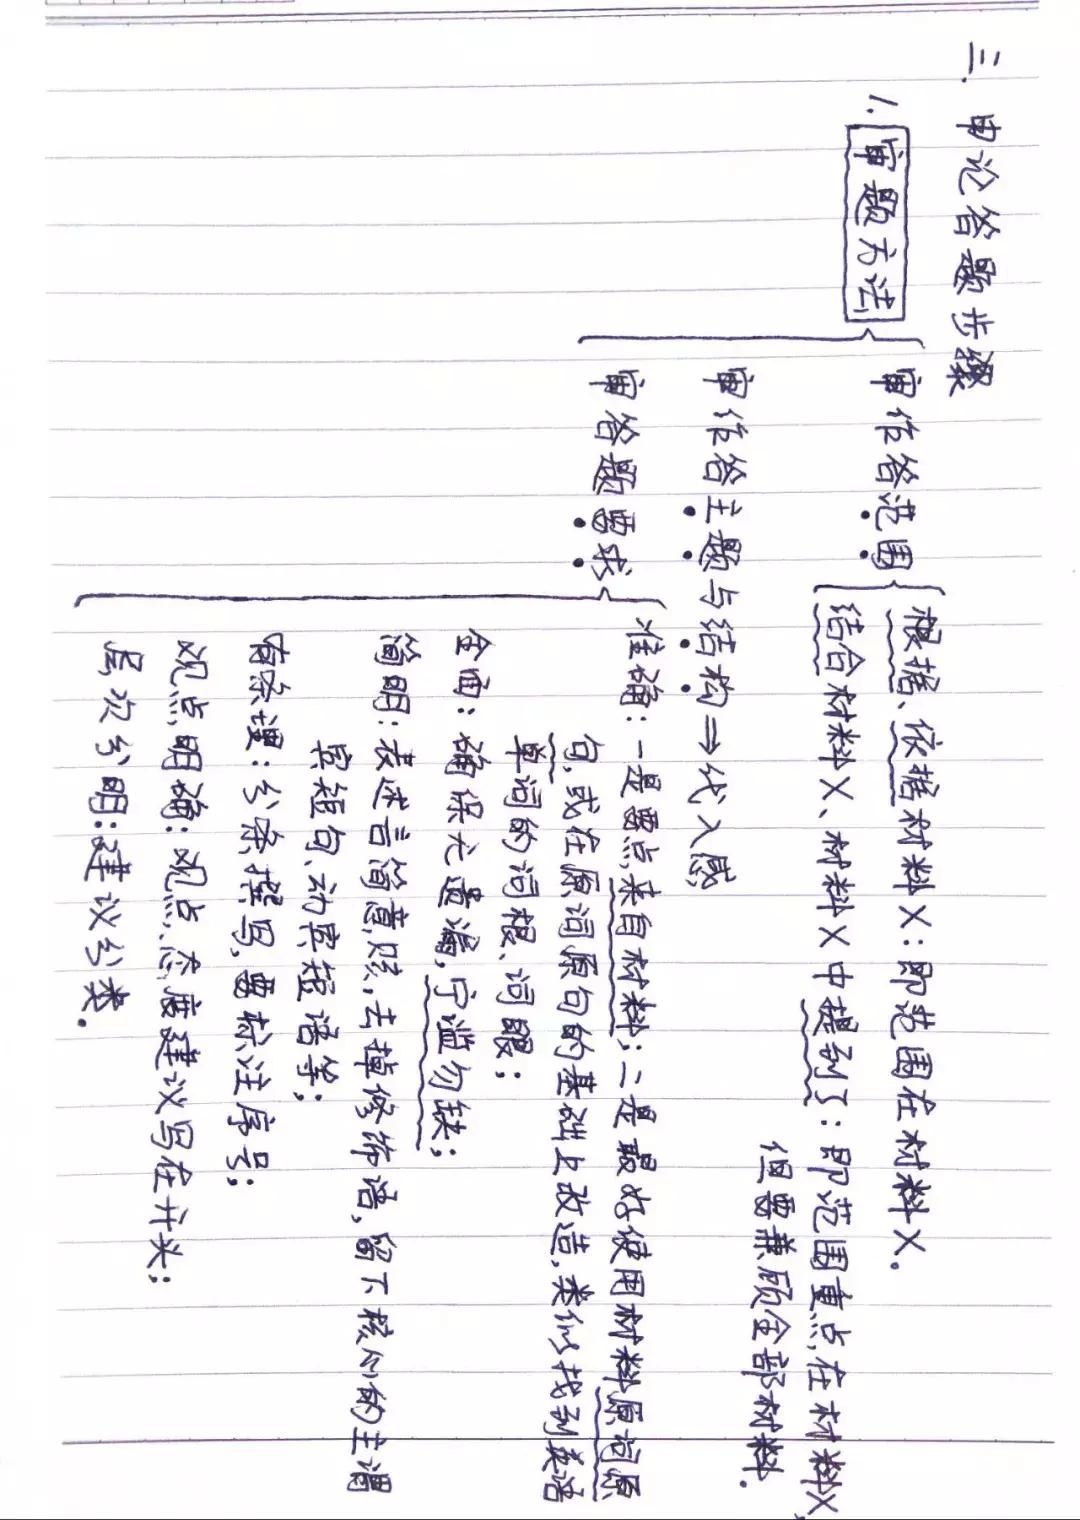 三. 申论答题步骤
1. 审题方法
审作答范围
根据、依据材料X:即范围在材料X.
结合材料X、材料X中提到了:即范围重点在材料X,
但要兼顾全部材料.
审作答主题与结构⇒代入感
审答题要求
准确:一是要点来自材料;二是最好使用材料原词原
句,或在原词原句的基础上改造,类似找到英语
单词的词根、词眼;
全面:确保无遗漏,宁滥勿缺;
简明:表述言简意赅,去掉修饰语,留下核心的主谓
宾短句、动宾短语等;
有条理:分条撰写,要标注序号;
观点明确:观点、态度建议写在开头;
层次分明:建议分类.